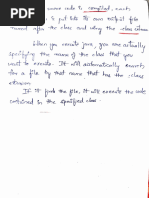 source code is compiled, each
is put into its own output file
named after the class and using the .class extension
When you execute java, you are actually
specifying the name of the class that you
want to execute. It will automatically search
for a file by that name that has the .class
extension.
If it finds the file, it will execute the code
contained in the specified class.